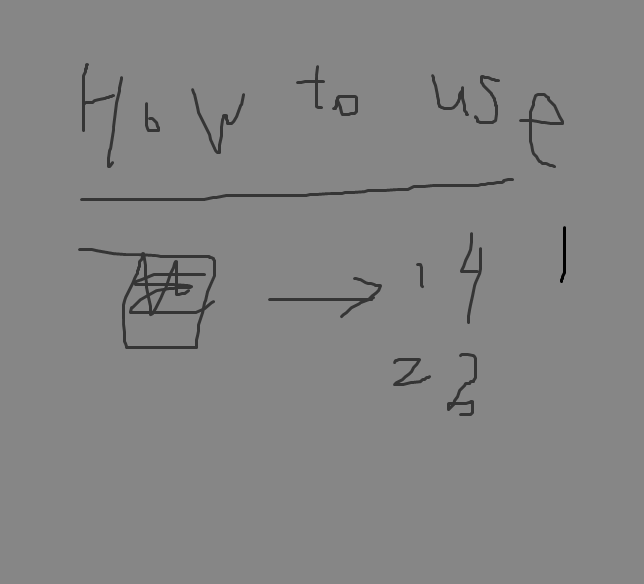 How to use
1 4
2 2